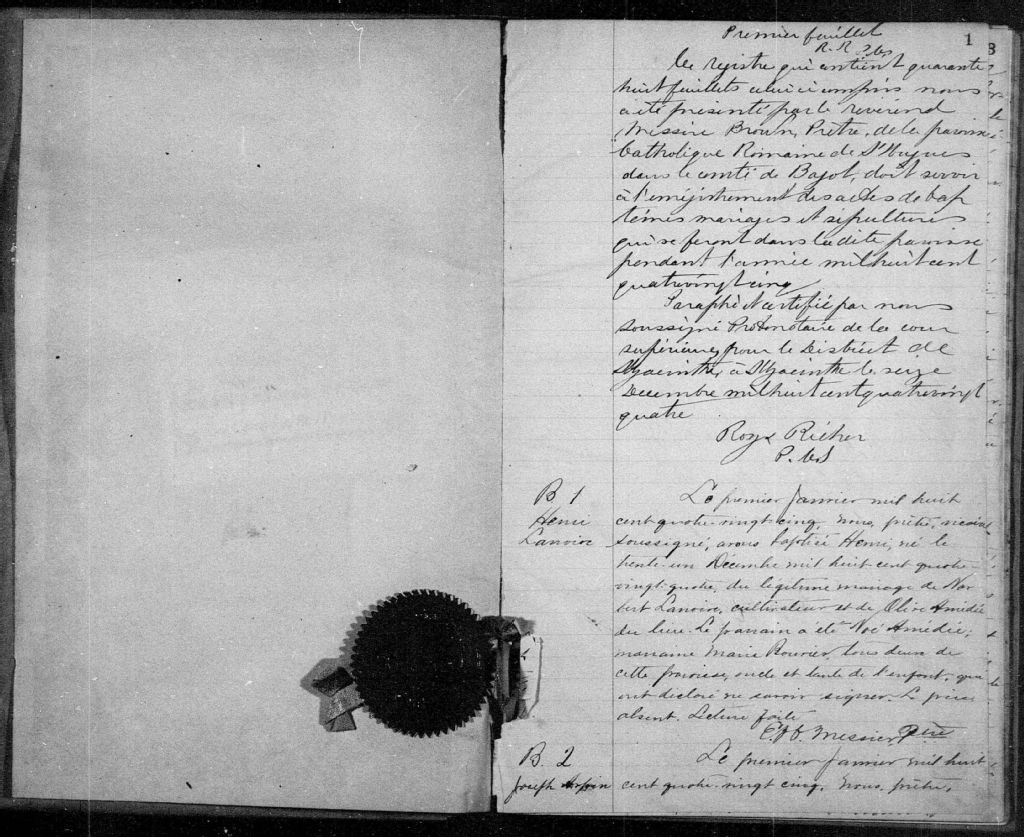 Premier feuillet
1
R. R
8
Ce registre qui contient quarante
huit feuillets celui ci compris nous
a été présenté par le révérend
Messire Brown, Prêtre, de la paroisse
Catholique Romaine de St Hugues
dans le comté de Bagot, doit servir
à l'enrégistrement des actes de bap
têmes mariages et sépultures
qui se feront dans la dite paroisse
pendant l'année mil huit cent
quatrevingt cinq
Paraphé et certifié par nous
soussigné Protonotaire de la cour
supérieure, pour le District de
St Hyacinthe, à St Hyacinthe le seize
Décembre mil huit cent quatrevingt
quatre
Roy & Richer
P. C. S
B 1
Henri
Lanoire
Le premier Janvier mil huit
cent quatre-vingt cinq, Nous, prêtre, vicaire
soussigné, avons baptisé Henri, né le
trente-un Décembre mil huit-cent quatre-
vingt-quatre, du légitime mariage de Nor
bert Lanoire, cultivateur et de Olive Amédée
du lieu. Le parrain a été Noé Amédée;
marraine Marie Bouvier, tous deux de
cette paroisse, oncle et tante de l'enfant, qui
ont déclaré ne savoir signer. Le père
absent. Lecture faite
Messier, Ptre
B. 2
Joseph
Le premier Janvier mil huit
cent quatre-vingt cinq, Nous, prêtre,